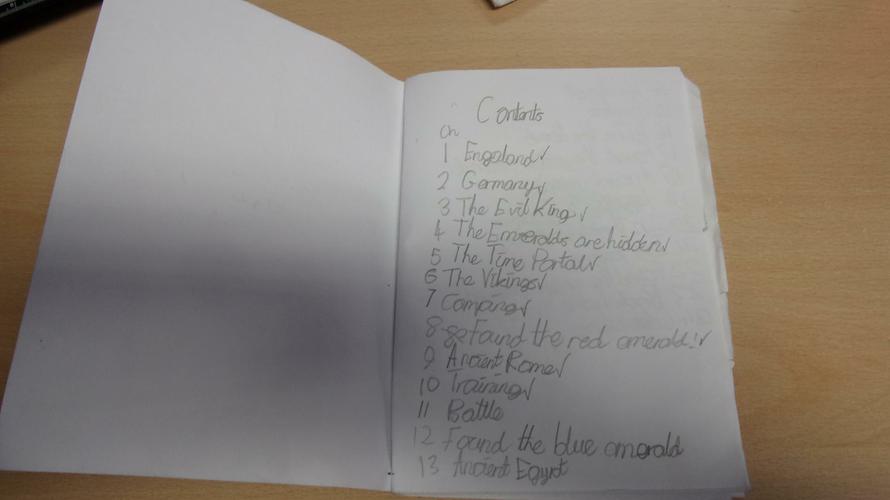 Contents
Ch
1 Engeland✓
2 Germany✓
3 The Evil King✓
4 The Emeralds are hidden✓
5 The Time Portal✓
6 The Vikings✓
7 Camping✓
8 Found the red emerald!✓
9 Ancient Rome✓
10 Training✓
11 Battle
12 Found the blue emerald
13 Ancient Egypt